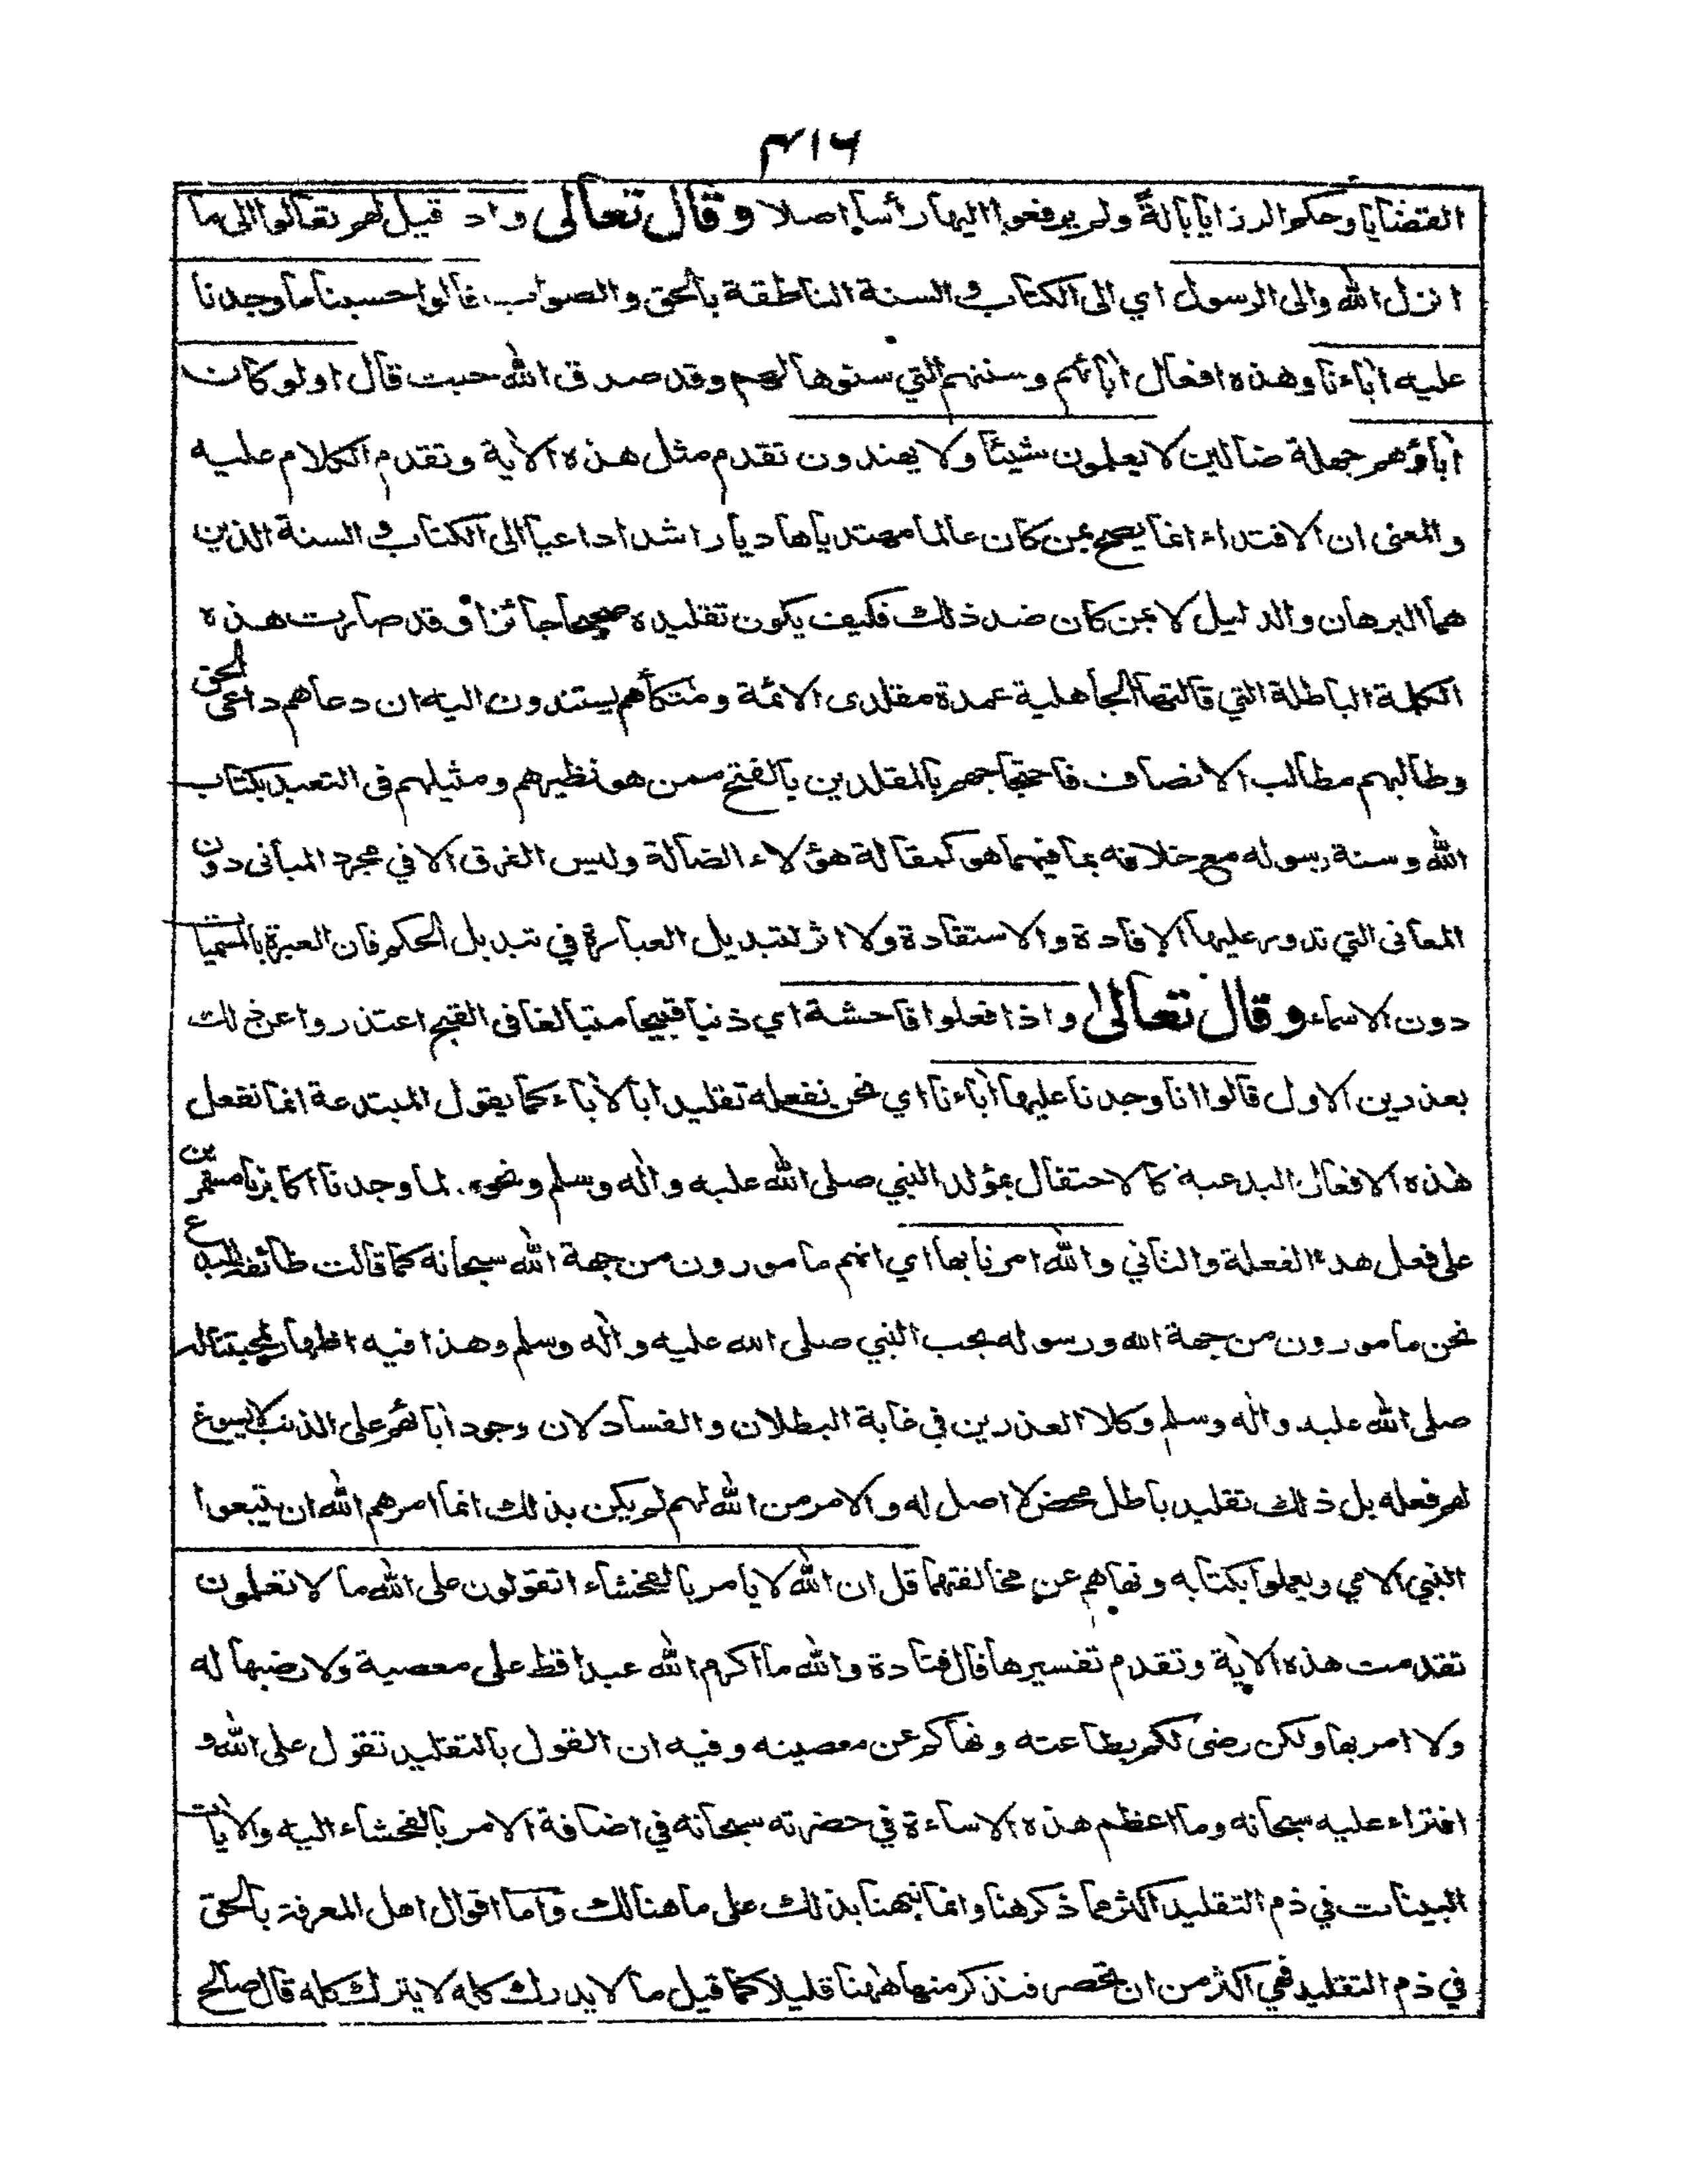 ٣١٦
القضايا وحكم الرزايا بالة ولم يرفعوا اليها رأسا اصلا وقال تعالى واذ قيل لهم تعالوا الى ما
انزل الله والى الرسول اي الى الكتاب والسنة الناطقة بالحق والصواب قالوا حسبنا ما وجدنا
عليه اٰباءنا وهذه افعال اٰبائهم وسننهم التي سنوها لهم وقد صدق الله حيث قال اولو كان
اٰباؤهم جهلة ضالين لا يعلمون شيئا ولا يهتدون تقدم مثل هذه الاٰية وتقدم الكلام عليه
والمعنى ان الاقتداء انما يصح بمن كان عالما مهتديا هاديا راشدا داعيا الى الكتاب والسنة الذين
هما البرهان والدليل لا بمن كان ضد ذلك فكيف يكون تقليده صحيحا جائزا وقد صارت هذه
الكلمة الباطلة التي قالتها الجاهلية عمدة مقلدى الائمة ومتكأهم يستندون اليه ان دعاهم داعى الحق
وطالبهم مطالب الانصاف فاحتجاجهم بالمقلدين بالفتح ممن هو نظيرهم ومثيلهم فى التعبد بكتاب
الله وسنة رسوله مع خلافه بما فيهما هو كمقالة هؤلاء الضالة وليس الفرق الا في مجرد المبانى دون
المعانى التي تدور عليها الافادة والاستفادة ولا اثر لتبديل العبارة في تبديل الحكم فان العبرة بالمسميات
دون الاسماء وقال تعالى واذا فعلوا فاحشة اي ذنبا قبيحا متبالغا فى القبح اعتذروا عن ذلك
بعذرين الاول قالوا انا وجدنا عليها اٰباءنا اي نحن نفعله تقليدا بالاٰباء كما يقول المبتدعة انما نفعل
هٰذه الافعال البدعية كالاحتفال بمولد النبي صلى الله عليه واٰله وسلم ونحوه لما وجدنا اكابرنا مستمرين
على فعل هذه الفعلة والثاني والله امرنا بها اي انهم مامورون من جهة الله سبحانه كما قالت طائفة البدع
نحن مامورون من جهة الله ورسوله بحب النبي صلى الله عليه واٰله وسلم وهذا فيه اظهار لمحبتنا له
صلى الله عليه واٰله وسلم وكلا العذرين في غاية البطلان والفساد لان وجود اٰبائهم على الذنب لا يسوغ
لهم فعله بل ذلك تقليد باطل محض لا اصل له والامر من الله لهم لم يكن بذلك انما امرهم الله ان يتبعوا
النبي الامي ويعملوا بكتابه ونهاهم عن مخالفتهما قل ان الله لا يامر بالفحشاء اتقولون على الله ما لا تعلمون
تقدمت هذه الاٰية وتقدم تفسيرها قال قتادة والله ما اكرم الله عبدا قط على معصية ولا رضيها له
ولا امر بها ولكن رضى لكم بطاعته ونهاكم عن معصيته وفيه ان القول بالتقليد تقول على الله و
افتراء عليه سبحانه وما اعظم هذه الاساءة في حضرته سبحانه في اضافة الامر بالفحشاء اليه والاٰيات
البينات في ذم التقليد اكثر مما ذكرهنا وانما نبهنا بذلك على ما هنالك واما اقوال اهل المعرفة بالحق
في ذم التقليد فهي اكثر من ان تحصر فنذكر منها هٰهنا قليلا كما قيل ما لا يدرك كله لا يترك كله قال صالح